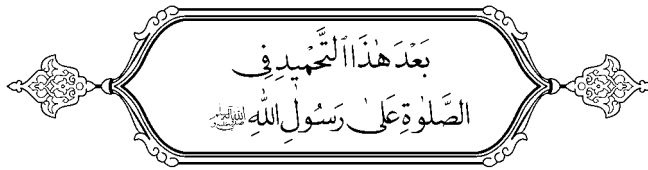 بَعْدَ هٰذَا ٱلتَّحْمِيدِ فِى
الصَّلٰوةِ عَلىٰ رَسُولِ اللّٰهِ ﷺ